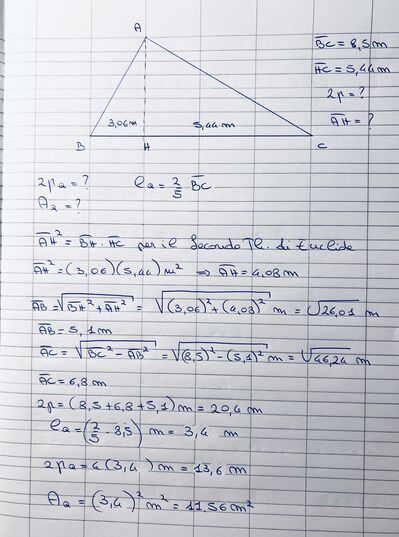 A
B̅C̅ = 8,5 m
H̅C̅ = 5,44 m
2p = ?
A̅H̅ = ?
3,06 m
5,44 m
B
H
C
2pa = ?
ℓa = 2/5 B̅C̅
Aa = ?
A̅H̅² = B̅H̅ · H̅C̅ per il Secondo Th. di Euclide
A̅H̅² = (3,06)(5,44) m² ⇒ A̅H̅ = 4,08 m
A̅B̅ = √(B̅H̅² + A̅H̅²) = √((3,06)² + (4,08)²) m = √26,01 m
A̅B̅ = 5,1 m
A̅C̅ = √(B̅C̅² - A̅B̅²) = √((8,5)² - (5,1)²) m = √46,24 m
A̅C̅ = 6,8 m
2p = (8,5 + 6,8 + 5,1) m = 20,4 m
ℓa = (2/5 - 8,5) m = 3,4 m
2pa = 4 (3,4) m = 13,6 m
Aa = (3,4)² m² = 11,56 m²